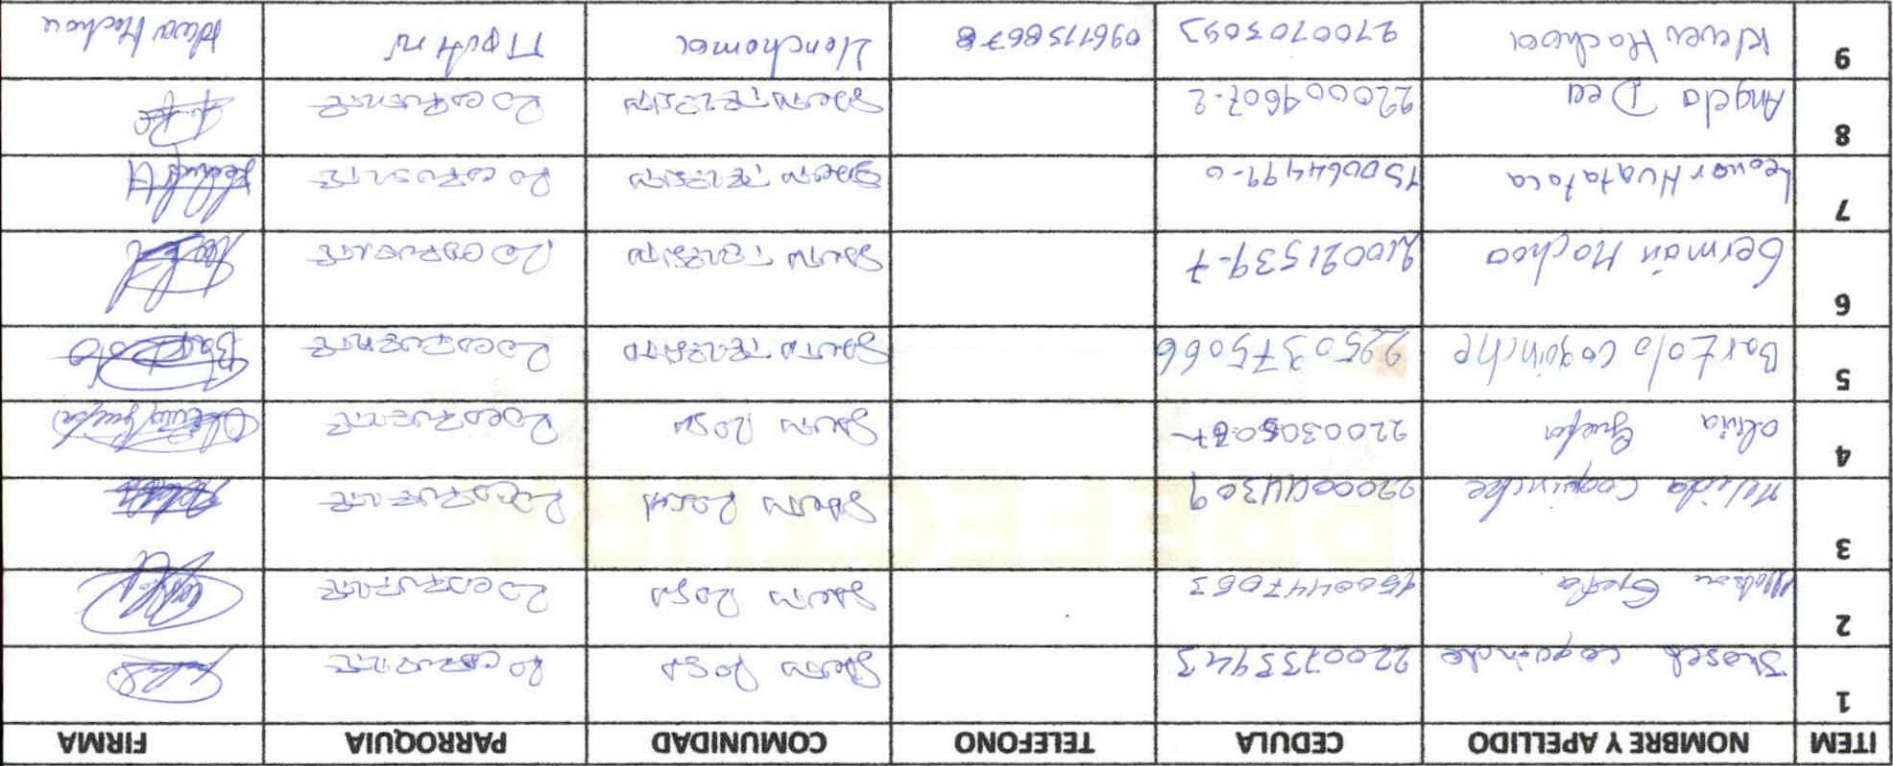 ITEM NOMBRE Y APELLIDO CEDULA TELEFONO COMUNIDAD PARROQUIA FIRMA
1 Jhoseh coquinche 2200735443 Santa Rosa Rocafuerte
2 Grefa 1500447063 Santa Rosa Rocafuerte
3 Nelida Coquinche 2200044309 Santa Rosa Rocafuerte
4 Olivia Grefa Santa Rosa Rocafuerte
5 Bartolo coquinche 2250375066 Santa Teresita Rocafuerte
6 Germán Mochoa 210021539-7 Santa Teresita Rocafuerte
7 Leonor Huatatoca 150064499-0 Santa Teresita Rocafuerte
8 Angela Dea 220009607-2 Santa Teresita Rocafuerte
9 Klever Mochoa 2100703093 0961758678